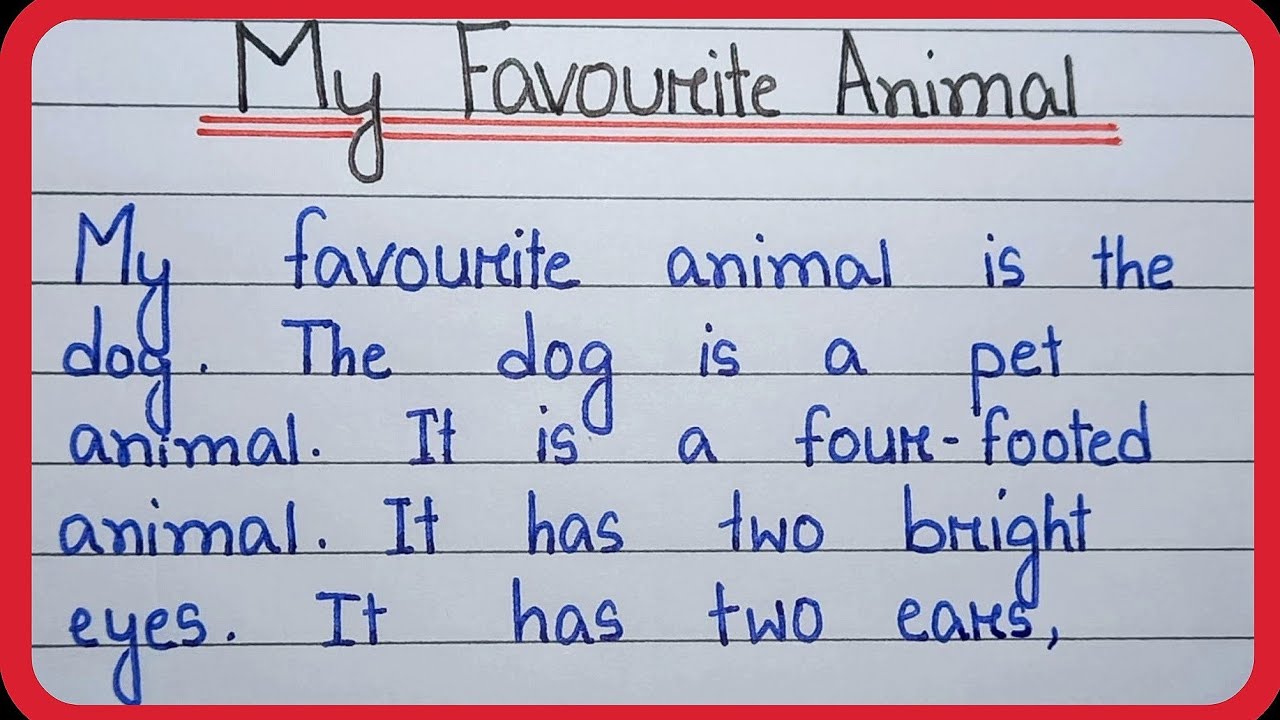 My Favourite Animal
My favourite animal is the
dog. The dog is a pet
animal. It is a four-footed
animal. It has two bright
eyes. It has two ears,